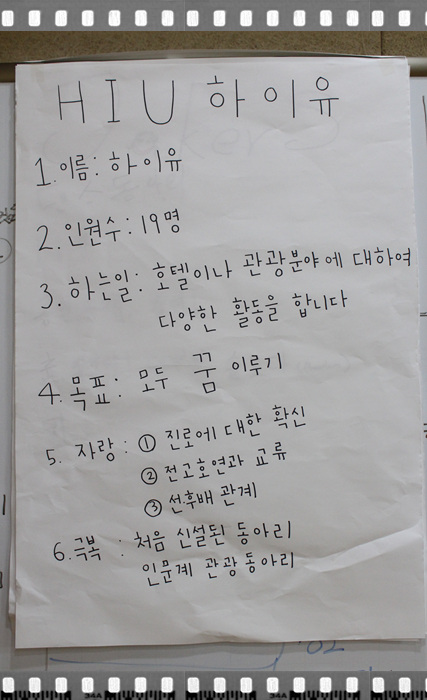 HIU 하이유
1. 이름: 하이유
2. 인원수: 19명
3. 하는일: 호텔이나 관광분야에 대하여
다양한 활동을 합니다
4. 목표: 모두 꿈 이루기
5. 자랑: ① 진로에 대한 확신
② 전고호연과 교류
③ 선후배 관계
6. 극복: 처음 신설된 동아리
인문계 관광동아리